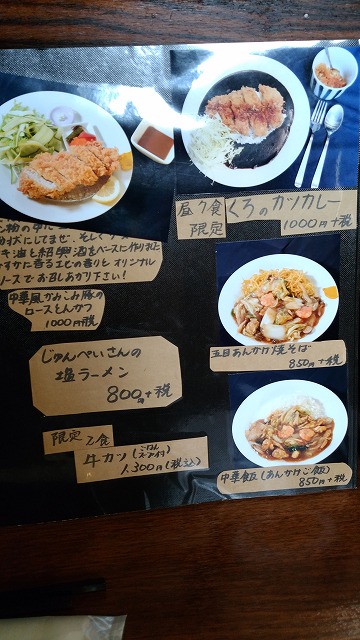 昼7食
限定
くろのカツカレー
1000円+税
揚げにしてませ、そしくブ
キ油と紹興酒をベースに作り上た
すかに香るエビの香りとオリジナル
ソースでお召しあがり下さい!
中華風かみこみ豚の
ロースとんかつ
1000円税
五目あんかけ焼そば
850円+税
じゅんぺいさんの
塩ラーメン
800円+税
限定2食
牛カツ(ごはん スープ付)
1,300円(税込)
中華飯(あんかけご飯)
850円+税